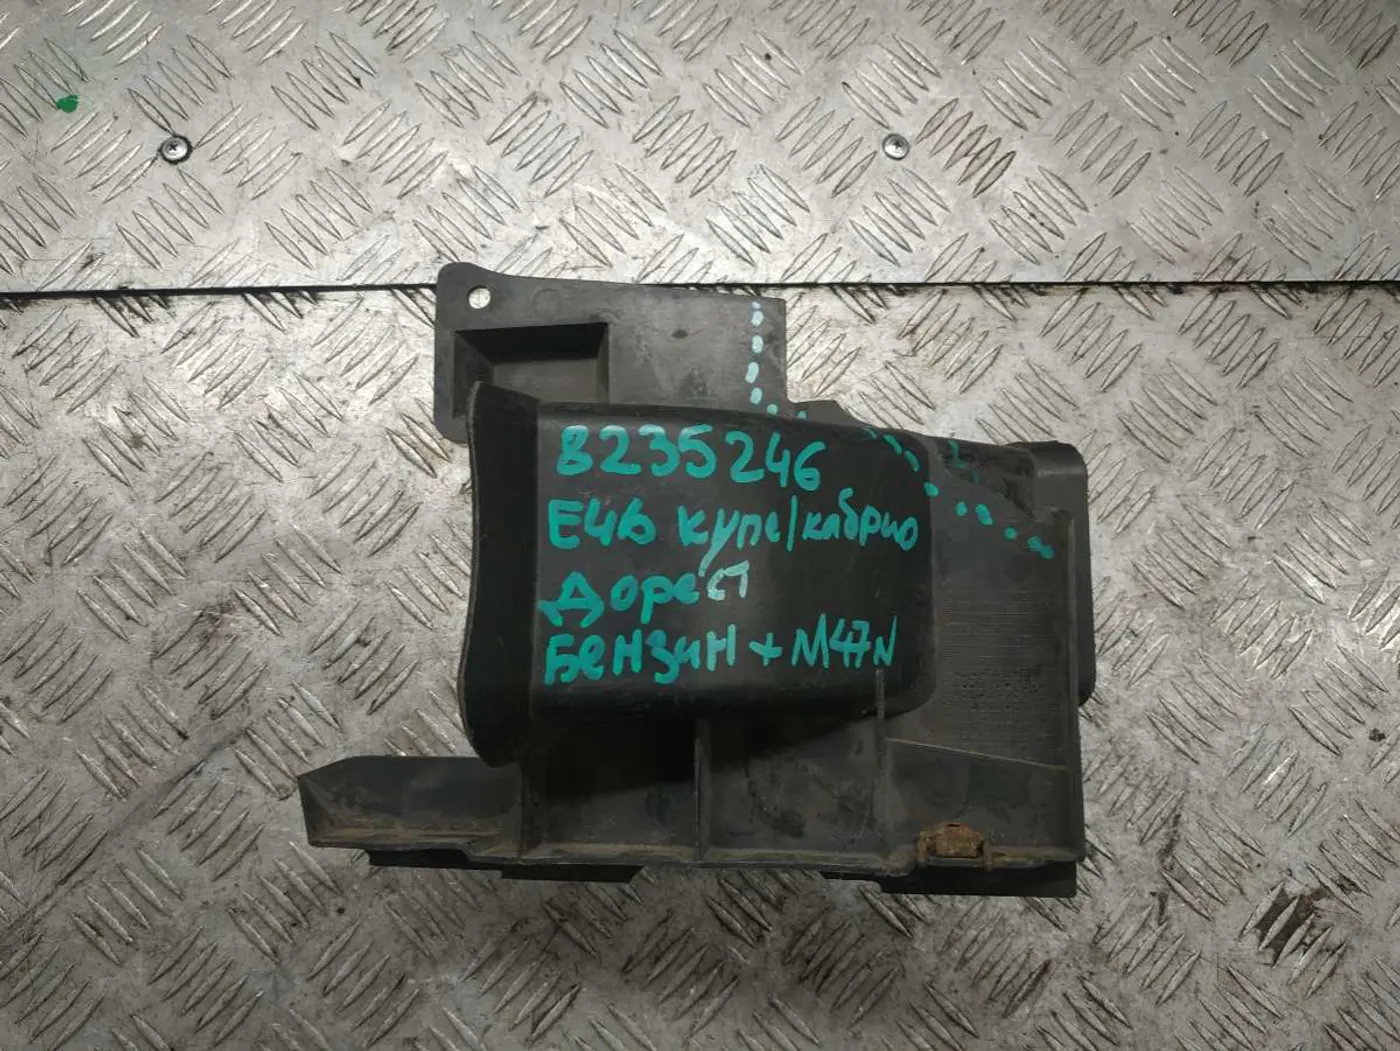 8235246
E46 купе/кабрио
Дорест
Бензин + M47N